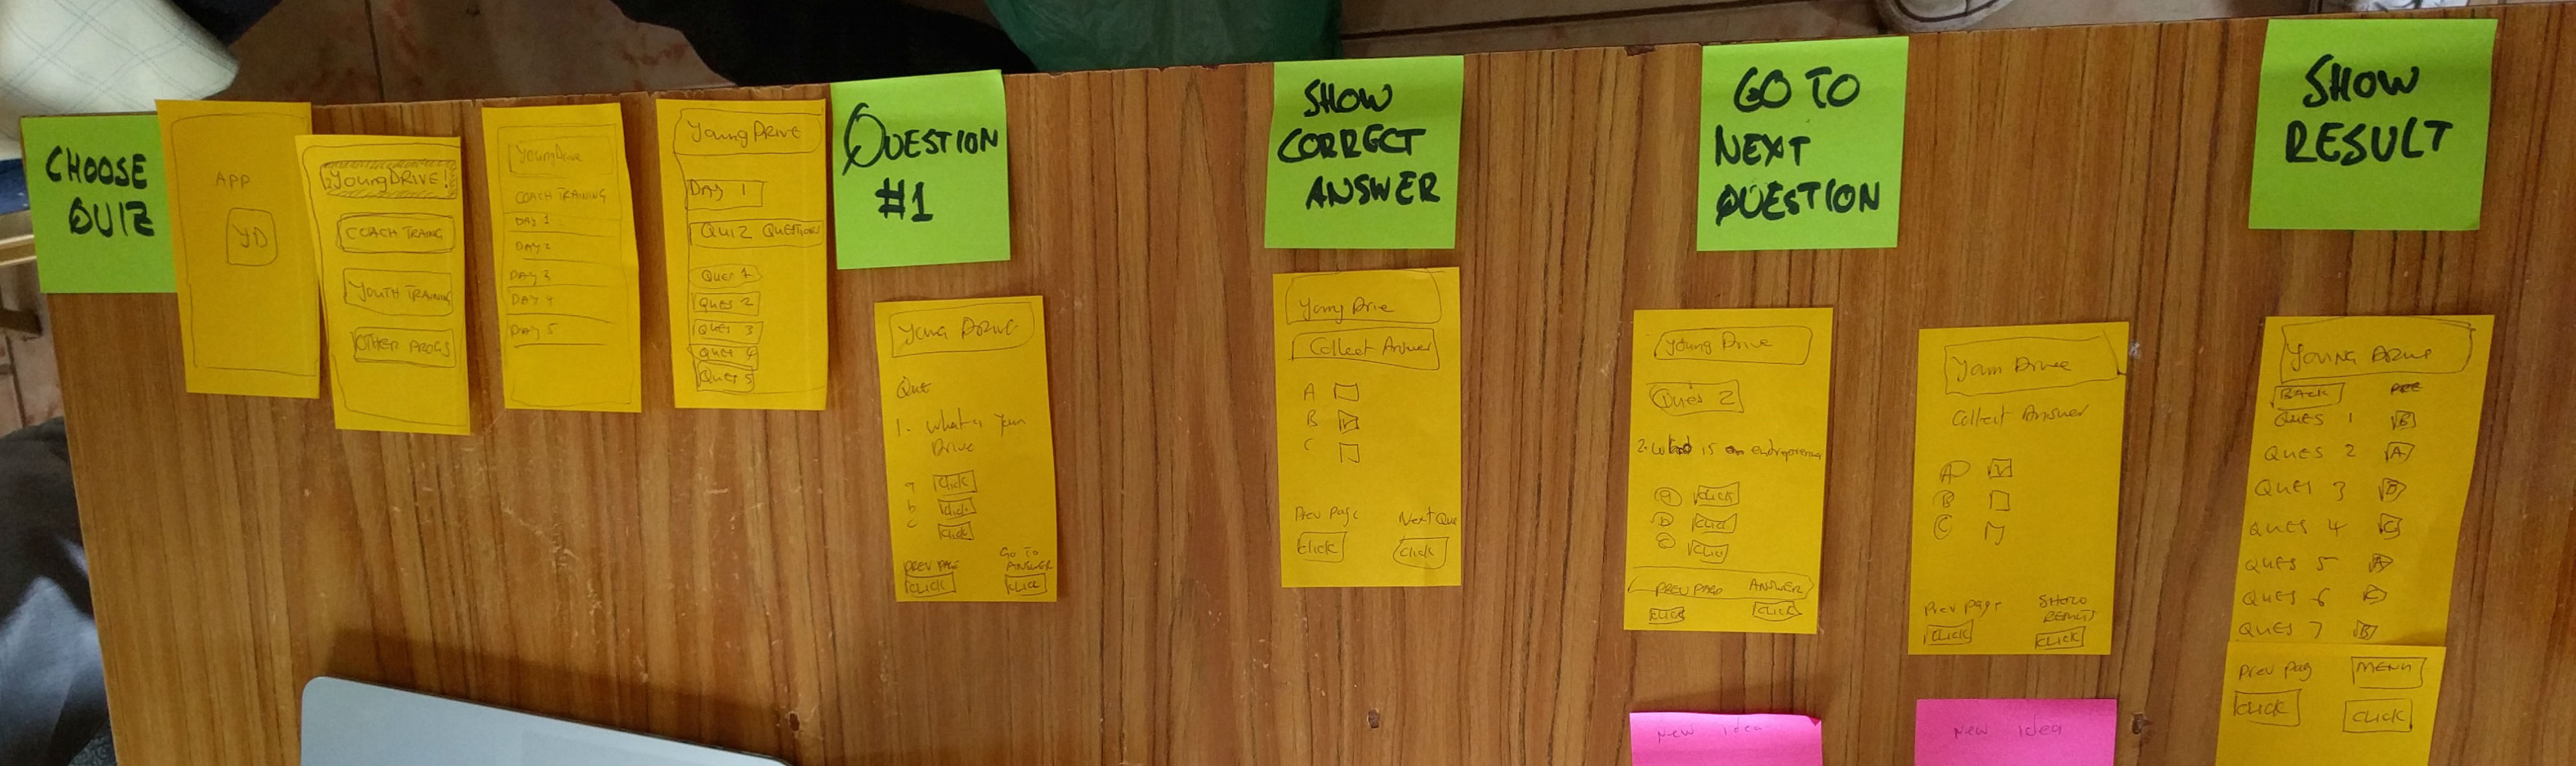 CHOOSE
QUIZ
APP
YD
YoungDRIVE!
COACH TRAING
YOUTH TRAINING
OTHER PROGS
YoungDrive
COACH TRAINING
DAY 1
DAY 2
DAY 3
DAY 4
DAY 5
Young DRIVE
DAY 1
QUIZ QUESTIONS
QUES 1
QUES 2
QUES 3
QUES 4
QUES 5
QUESTION
#1
Young Drive
Que
1. What is Youn
Drive
a click
b click
c click
PREV PAGE
Go To
ANSWER
CLICK
CLICK
SHOW
CORRECT
ANSWER
Young Drive
Collect Answer
A
B
C
Prev page Next Que
Click Click
GO TO
NEXT
QUESTION
Young Drive
Ques 2
2. is an
a click
b click
c click
PREV PAGE ANSWER
CLICK CLICK
New idea
Youn Drive
Collect Answer
A
B
C
Prev page
SHOW
RESULT
CLICK CLICK
New idea
SHOW
RESULT
YOUNG DRIVE
BACK
QUES 1 B
QUES 2 A
QUES 3
QUES 4 C
QUES 5 A
QUES 6 C
QUES 7 B
Prev pag MENU
CLICK CLICK